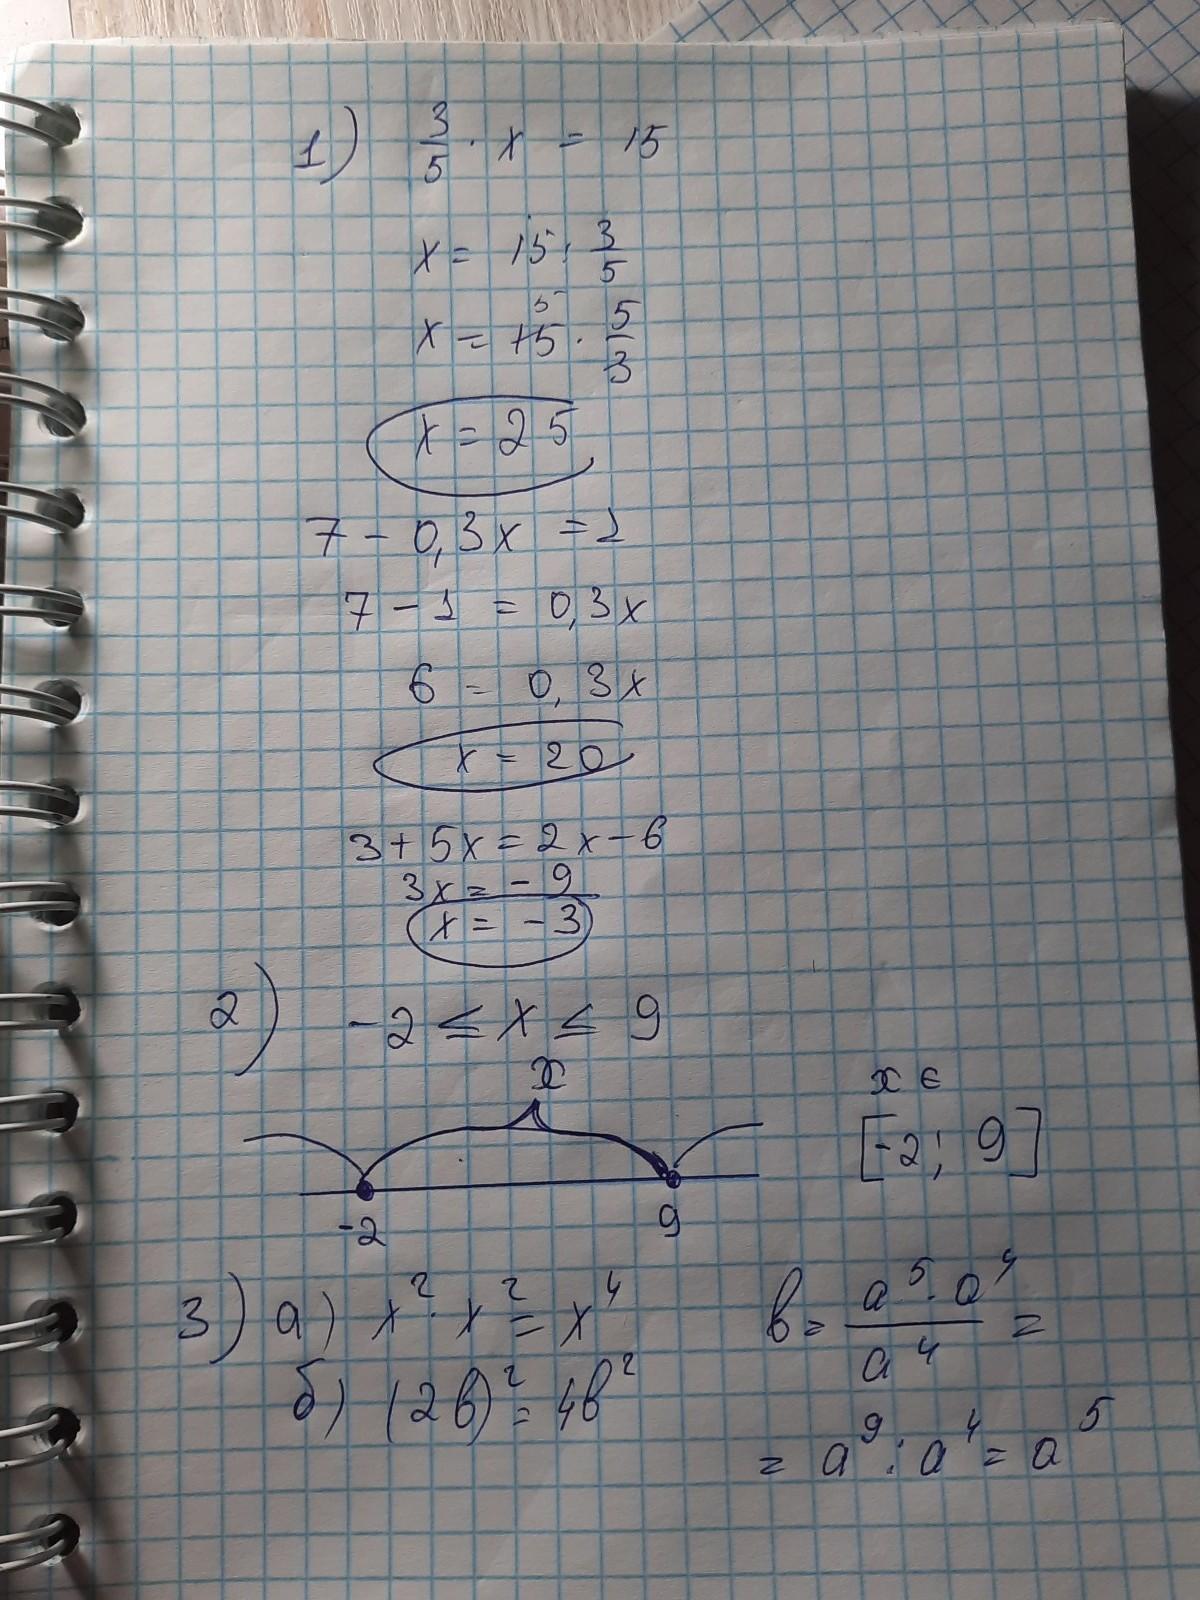 1) 3/5 · x = 15
x = 15 : 3/5
5
x = 15 · 5/3
x = 25
7 - 0,3x = 1
7 - 1 = 0,3x
6 = 0,3x
x = 20
3 + 5x = 2x - 6
3x = - 9
x = - 3
2) -2 ≤ x ≤ 9
x
x ∈
[-2; 9]
-2 9
3) а) x² · x² = x⁴
б) (2b)² = 4b²
в = a⁵ · a⁴ / a⁴ =
= a⁹ : a⁴ = a⁵